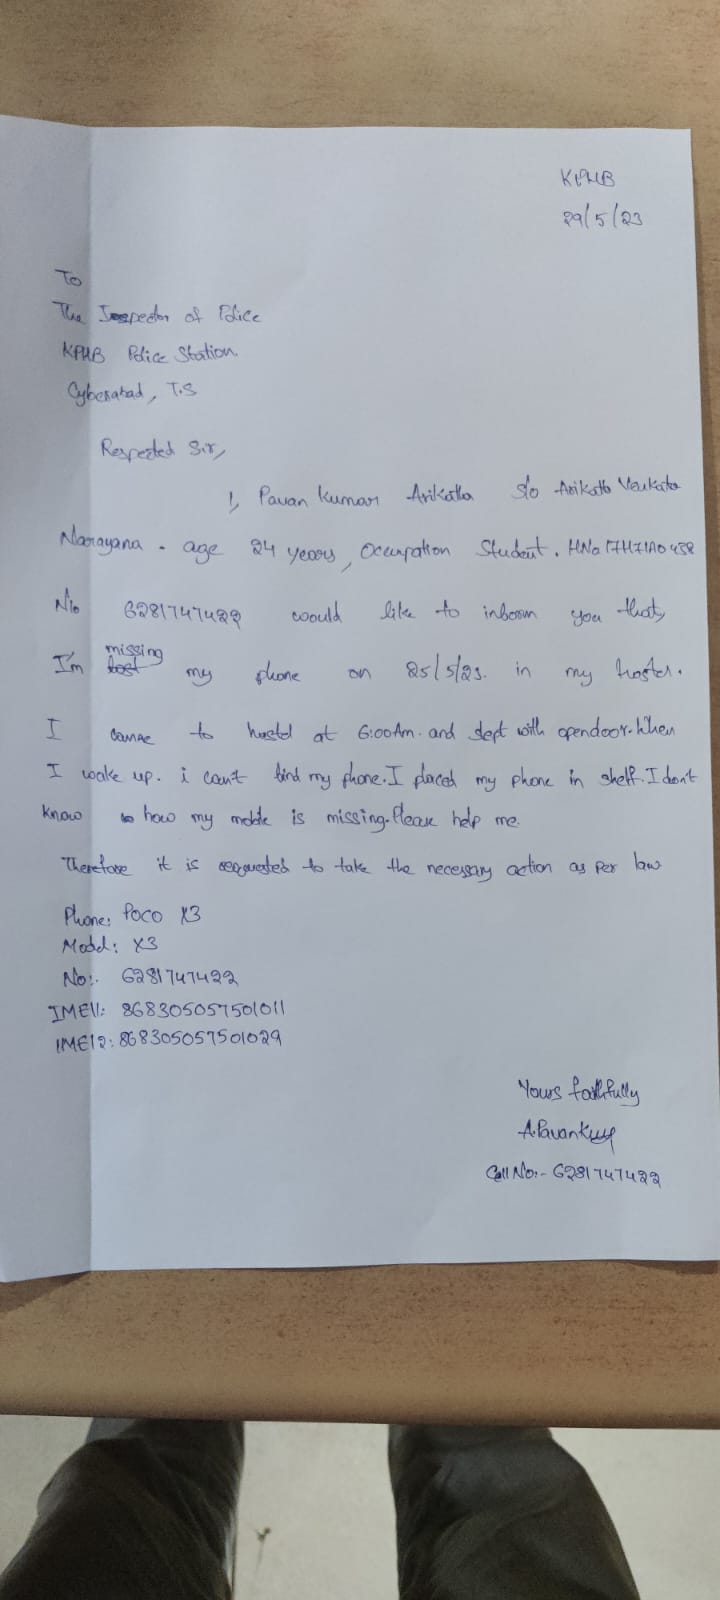 KPHB
29/5/23
To
The Inspector of Police
KPHB Police Station.
Cyberabad, T.S
Respected Sir,
I, Pavan Kumar Arikatla S/o Arikatla Venkata
Narayana. age 24 years, Occupation Student. HNo 17H71A0438
N/o 6281747422 would like to inform you that,
I'm missing my phone on 25/5/23. in my hostel.
I came to hostel at 6:00Am. and slept with opendoor. When
I wake up. i can't find my phone. I placed my phone in shelf. I don't
know how my mobile is missing. Please help me.
Therefore it is requested to take the necessary action as per law
Phone: Poco X3
Model: X3
No:. 6281747422
IMEI1: 868305057501011
IMEI2: 868305057501029
Yours faithfully
A.Pavankumar
Cell No:- 6281747422